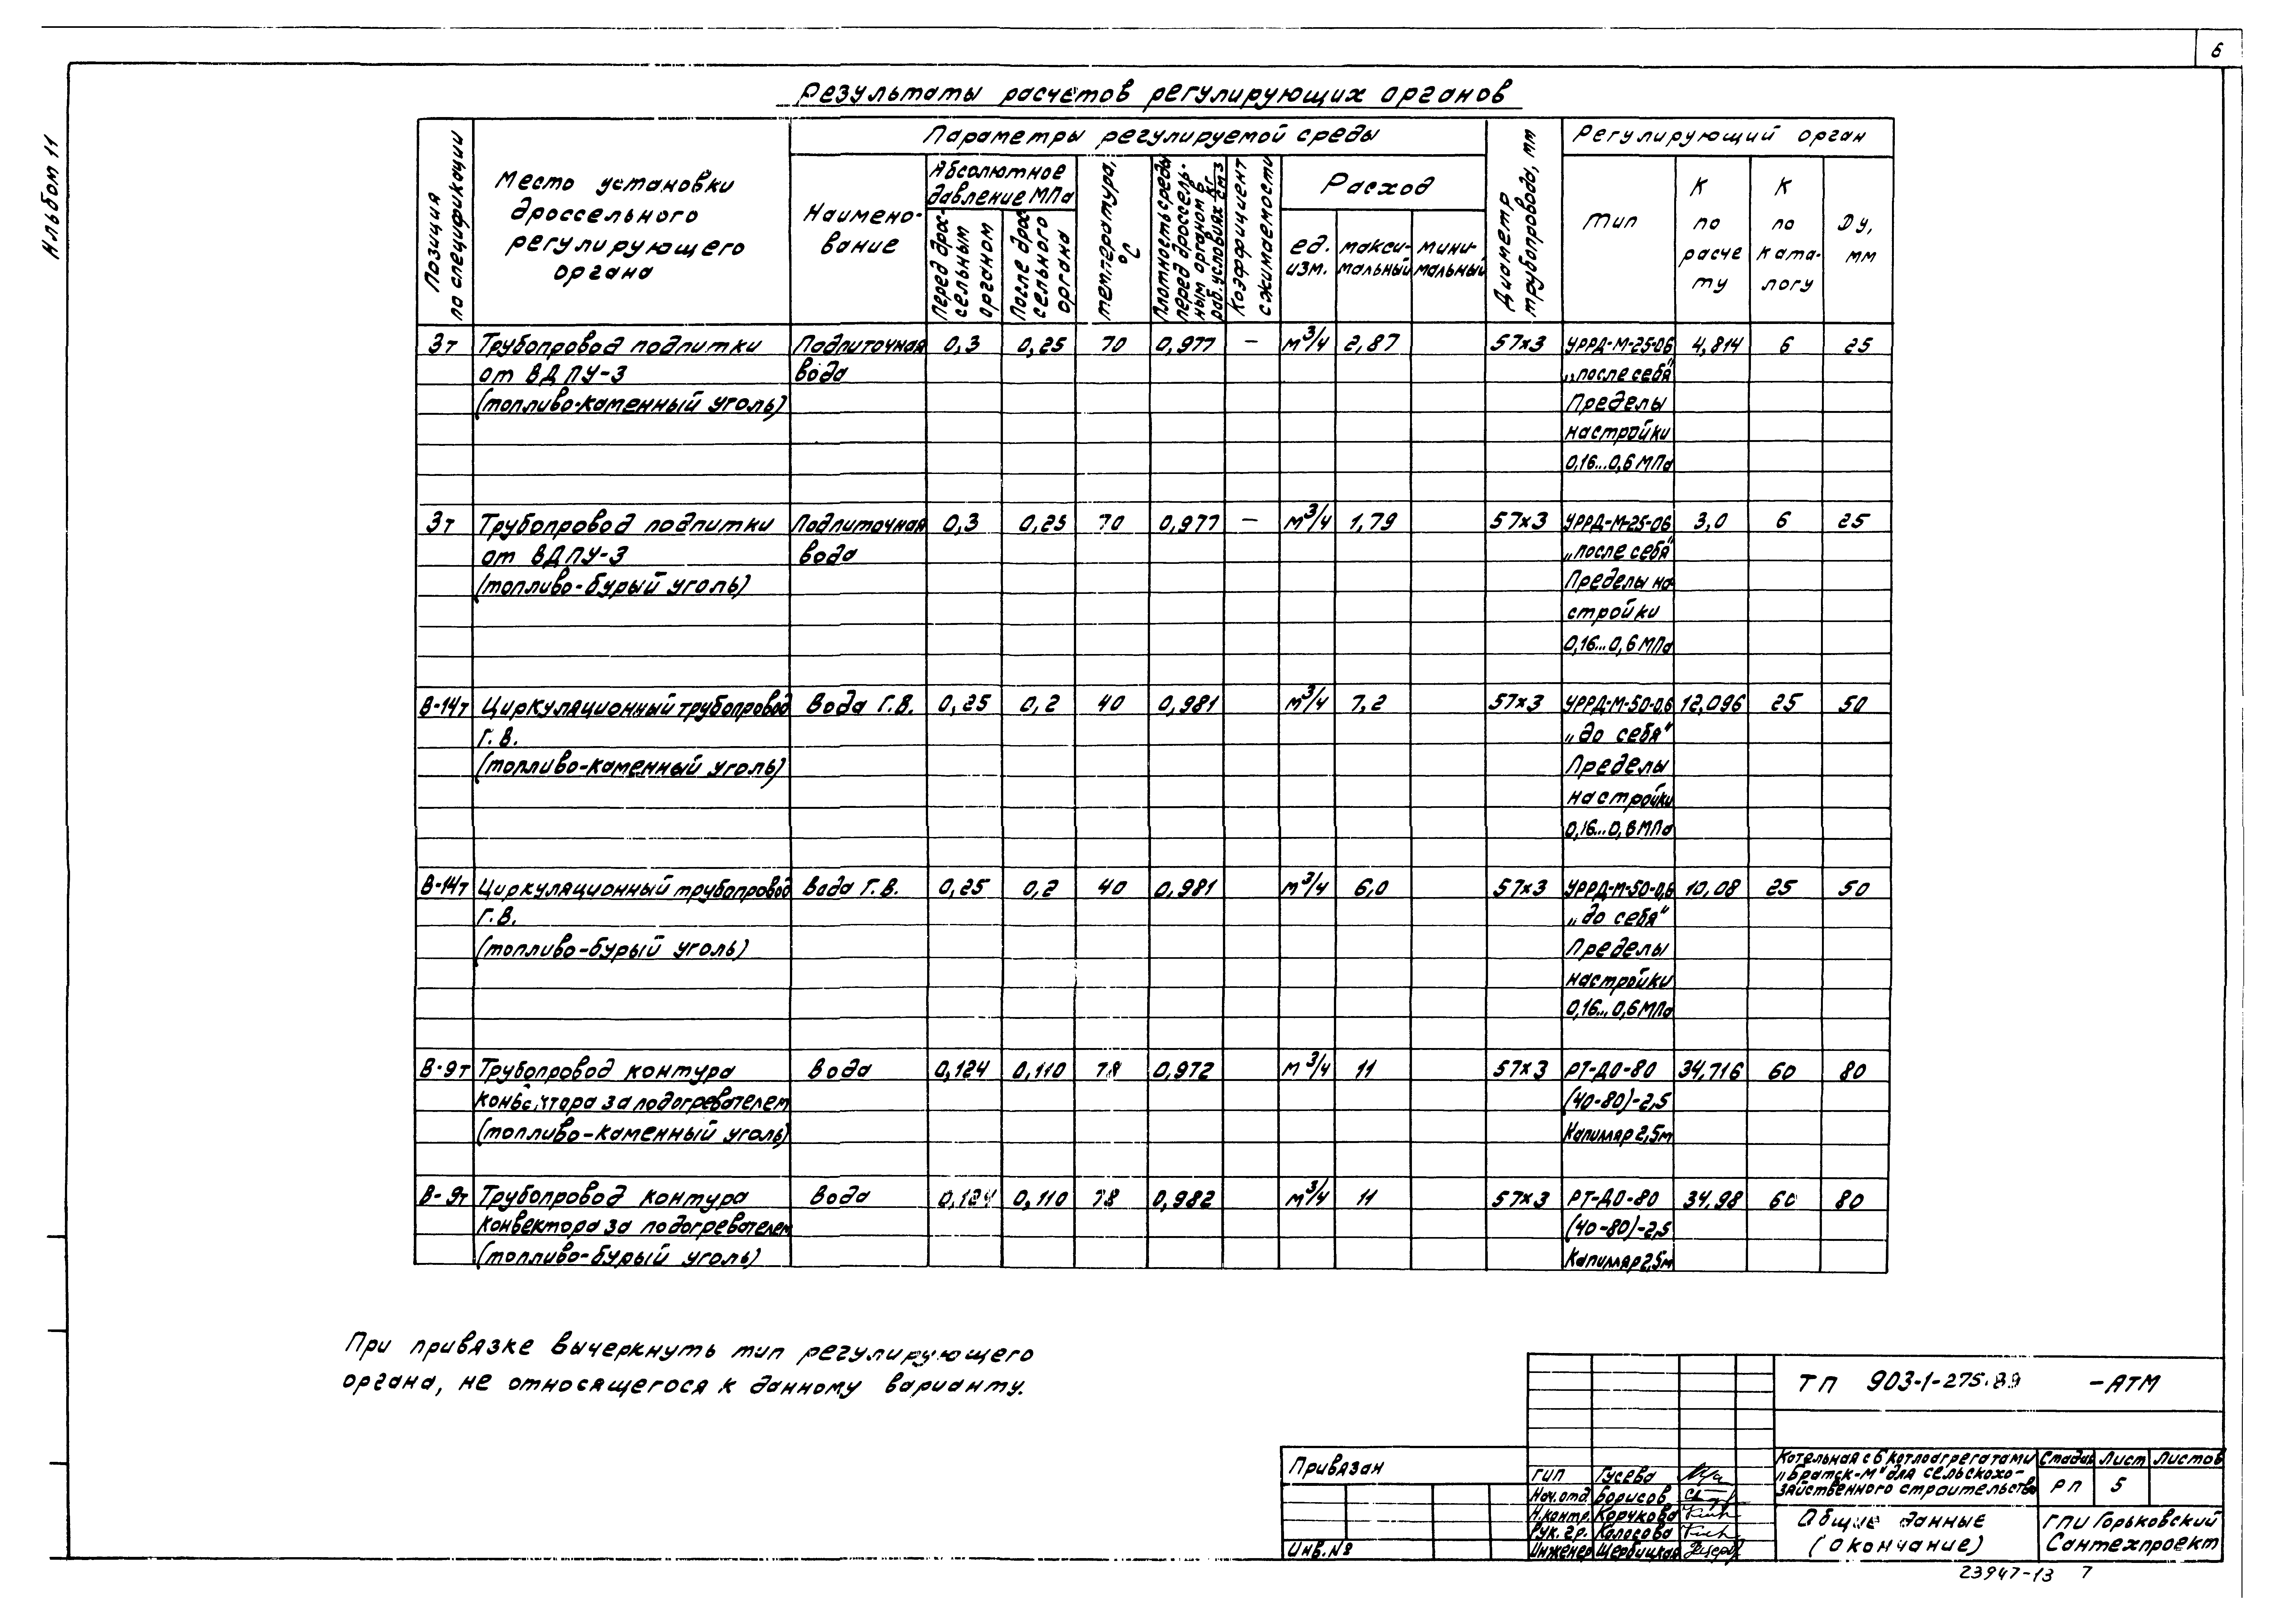 6
Альбом 11
Результаты расчетов регулирующих органов
Позиция по спецификации
Место установки дроссельного регулирующего органа
Параметры регулируемой среды
Наимено-
вание
Абсолютное давление МПа
Перед дрос-
сельным
органом
После дрос-
сельного
органа
температура, °С
Плотность среды
перед дроссель-
ным органом в
раб. условиях кг/см3
Коэффициент
сжимаемости
Расход
ед. изм.
макси-
мальный
мини-
мальный
Диаметр
трубопровода, мм
Регулирующий орган
тип
К по расче ту
К по ката-
логу
Ду, мм
3т Трубопровод подпитки Подпиточная 0,3 0,25 70 0,977 — м3/ч 2,87 57х3 УРРД-М-25-06 4,814 6 25
от ВДПУ-3 вода „после себя"
(топливо-каменный уголь) Пределы
настройки
0,16...0,6 МПа
3т Трубопровод подпитки Подпиточная 0,3 0,25 70 0,977 — м3/ч 1,79 57х3 УРРД-М-25-06 3,0 6 25
от ВДПУ-3 вода „после себя"
(топливо-бурый уголь) Пределы на
стройки
0,16...0,6 МПа
В-14т Циркуляционный трубопровод Вода Г.В. 0,25 0,2 40 0,981 м3/ч 7,2 57х3 УРРД-М-50-0,6 12,096 25 50
Г.В. „до себя"
(топливо-каменный уголь) Пределы
настройки
0,16...0,6 МПа
В-14т Циркуляционный трубопровод Вода Г.В. 0,25 0,2 40 0,981 м3/ч 6,0 57х3 УРРД-М-50-0,6 10,08 25 50
Г.В. „до себя"
(топливо-бурый уголь) Пределы
настройки
0,16... 0,6 МПа
В-9т Трубопровод контура Вода 0,124 0,110 78 0,972 м3/ч 11 57х3 РТ-ДО-80 34,716 60 80
конвектора за подогревателем (40-80)-2,5
(топливо-каменный уголь) Капилляр 2,5м
В-9т Трубопровод контура Вода 0,124 0,110 78 0,982 м3/ч 11 57х3 РТ-ДО-80 34,98 60 80
конвектора за подогревателем (40-80)-2,5
(топливо-бурый уголь) Капилляр 2,5м
При привязке вычеркнуть тип регулирующего
органа, не относящегося к данному варианту.
ТП 903-1-275.89 -АТМ
Привязан
Инв.№
ГИП Гусева
Нач.отд. Борисов
Н.контр. Корчкова
Рук. гр. Колосова
Инженер Щербицкая
Котельная с 6 котлоагрегатами
„Братск-М" для сельскохо-
зяйственного строительства
Стадия Лист Листов
РП 5
Общие данные
(окончание)
ГПИ Горьковский
Сантехпроект
23947-13 7